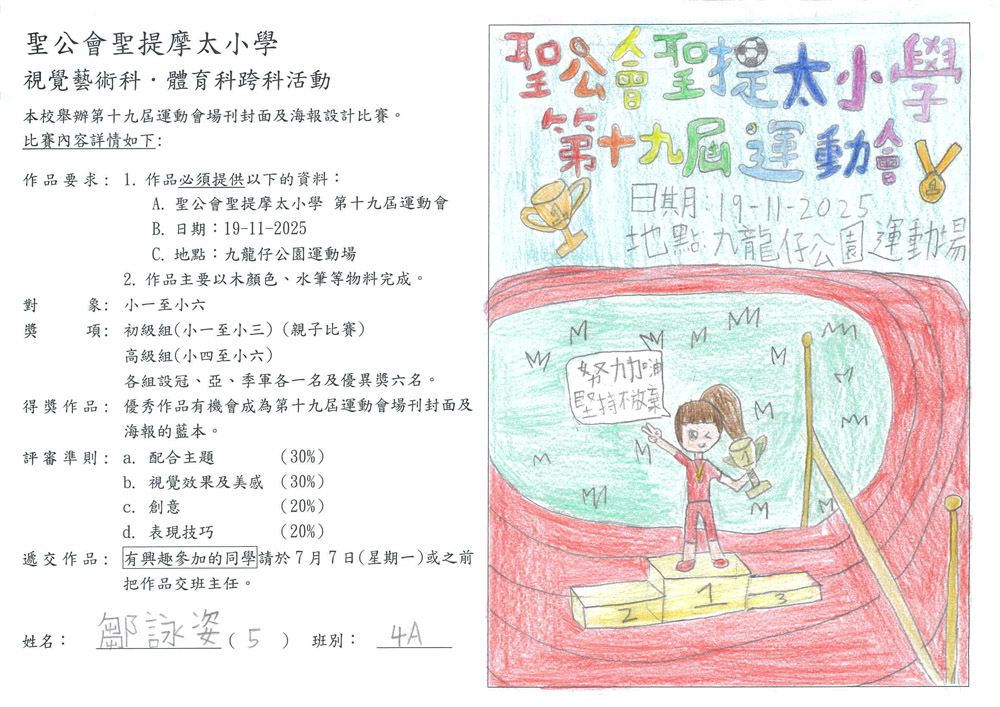 聖公會聖提摩太小學
視覺藝術科·體育科跨科活動
本校舉辦第十九屆運動會場刊封面及海報設計比賽。
比賽內容詳情如下:
作品要求: 1. 作品必須提供以下的資料:
A. 聖公會聖提摩太小學 第十九屆運動會
B. 日期:19-11-2025
C. 地點:九龍仔公園運動場
2. 作品主要以木顏色、水筆等物料完成。
對 象: 小一至小六
獎 項: 初級組(小一至小三) (親子比賽)
高級組(小四至小六)
各組設冠、亞、季軍各一名及優異獎六名。
得獎作品: 優秀作品有機會成為第十九屆運動會場刊封面及
海報的藍本。
評審準則: a. 配合主題 (30%)
b. 視覺效果及美感 (30%)
c. 創意 (20%)
d. 表現技巧 (20%)
遞交作品: 有興趣參加的同學請於7月7日(星期一)或之前
把作品交班主任。
姓名: 鄒詠姿 ( 5 ) 班別: 4A
聖公會聖提太小學
第十九屆運動會
日期:19-11-2025
地點:九龍仔公園運動場
努力加油
堅持不放棄
1
1
1
2
1
3